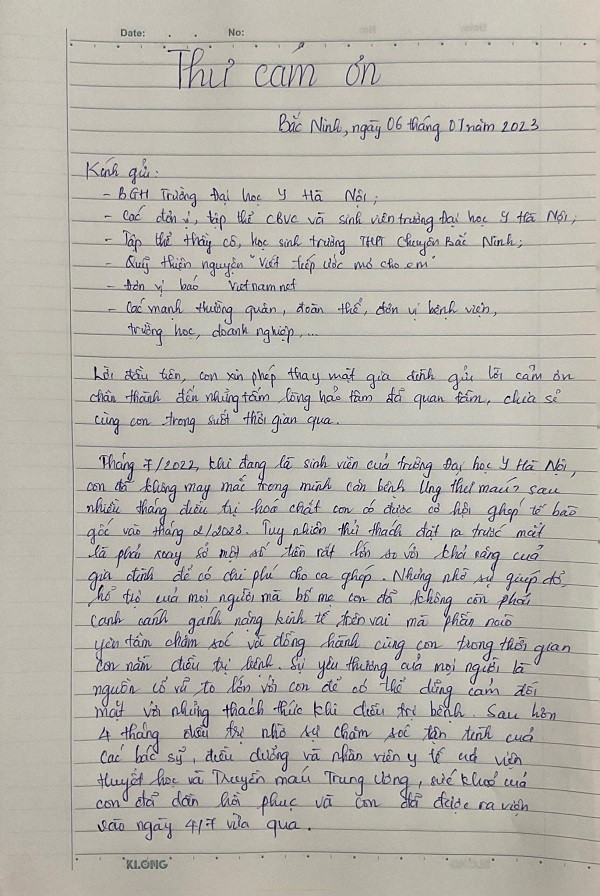 Date: . . No:
Thư cảm ơn
Bắc Ninh, ngày 06 tháng 07 năm 2023
Kính gửi:
- BGH Trường Đại học Y Hà Nội;
- Các đơn vị, tập thể CBVC và sinh viên trường Đại học Y Hà Nội;
- Tập thể thầy cô, học sinh trường THPT Chuyên Bắc Ninh;
- Quỹ thiện nguyện "Viết tiếp ước mơ cho em"
- Đơn vị báo Vietnamnet
- Các mạnh thường quân, đoàn thể, đơn vị bệnh viện,
trường học, doanh nghiệp,...
Lời đầu tiên, con xin phép thay mặt gia đình gửi lời cảm ơn
chân thành đến những tấm lòng hảo tâm đã quan tâm, chia sẻ
cùng con trong suốt thời gian qua.
Tháng 7/2022, khi đang là sinh viên của trường Đại học Y Hà Nội,
con đã không may mắc trong mình căn bệnh Ung thư máu, sau
nhiều tháng điều trị hoá chất con có được cơ hội ghép tế bào
gốc vào tháng 2/2023. Tuy nhiên thử thách đặt ra trước mắt
là phải xoay sở một số tiền rất lớn so với khả năng của
gia đình để có chi phí cho ca ghép. Nhưng nhờ sự giúp đỡ,
hỗ trợ của mọi người mà bố mẹ con đã không còn phải
canh cánh gánh nặng kinh tế trên vai mà phần nào
yên tâm chăm sóc và đồng hành cùng con trong thời gian
con nằm điều trị bệnh. Sự yêu thương của mọi người là
nguồn cổ vũ to lớn với con để có thể dũng cảm đối
mặt với những thách thức khi điều trị bệnh. Sau hơn
4 tháng điều trị nhờ sự chăm sóc tận tình của
các bác sỹ, điều dưỡng và nhân viên y tế của viện
Huyết học và Truyền máu Trung Ương, sức khoẻ của
con đã dần hồi phục và con đã được ra viện
vào ngày 4/7 vừa qua.
KLONG